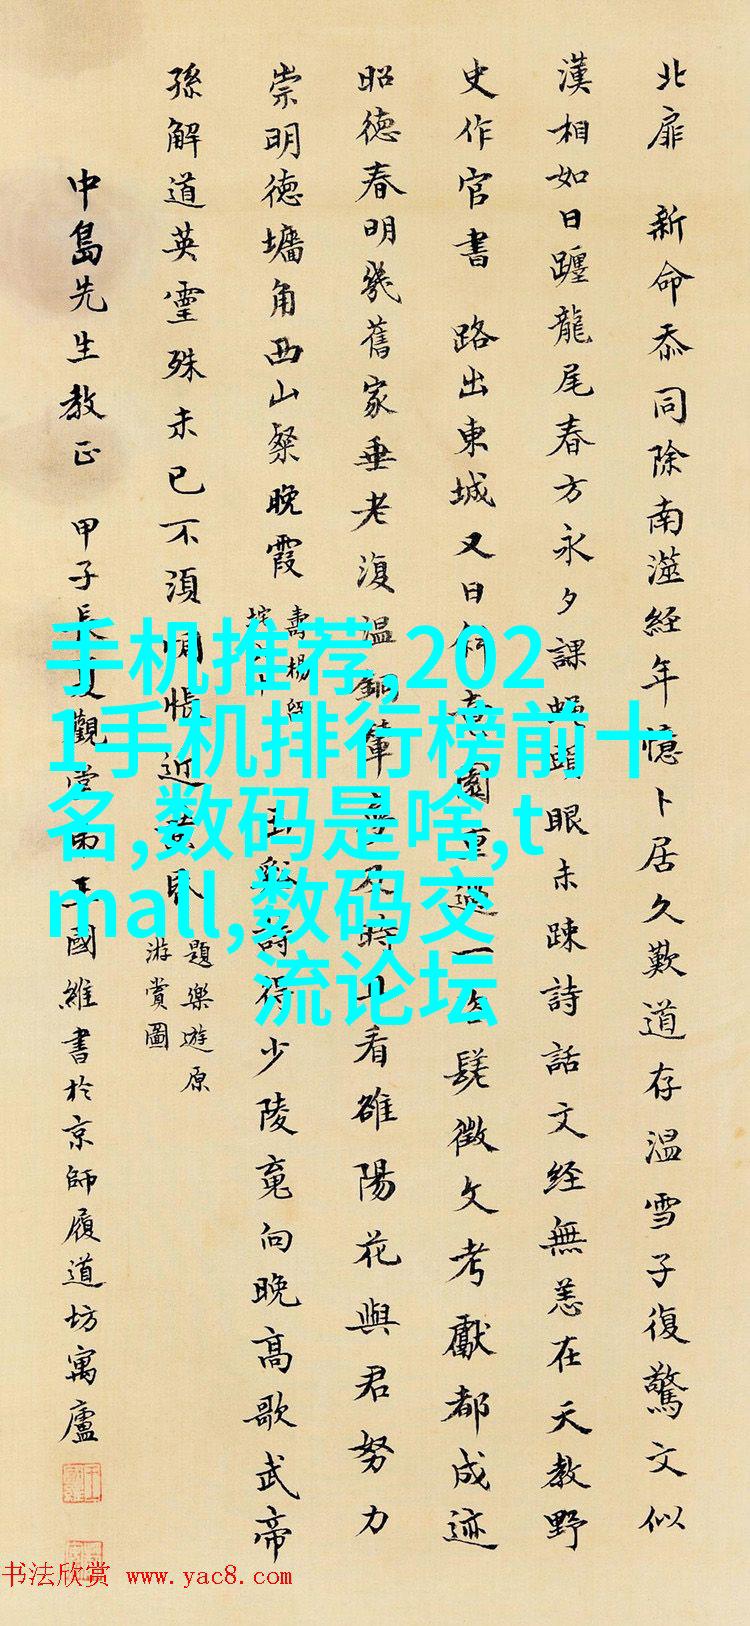 北扉 新命忝同除南澨經年憶卜居久歎道存溫雪子復驚文似
漢相如日躔龍尾春方永夕課蠅頭眼未疎詩話文經無恙在天教野
史作官書 路出東城又日斜意園重過一
髦徵文考獻都成迹
昭德春明幾舊家垂老復溫銅輦
看雒陽花與君努力
崇明德墻角西山粲晚霞
壽楊
詩得少陵
向晚高歌武帝
孫解道英靈殊未已不須惆悵近黃昏
題樂遊原
游賞圖
中島先生教正 甲子長夏觀堂弟王國維書於京師履道坊寓廬
手机推荐,202
1手机排行榜前十
名,数码是啥,t
mall,数码交
流论坛
书法欣赏 www.yac8.com